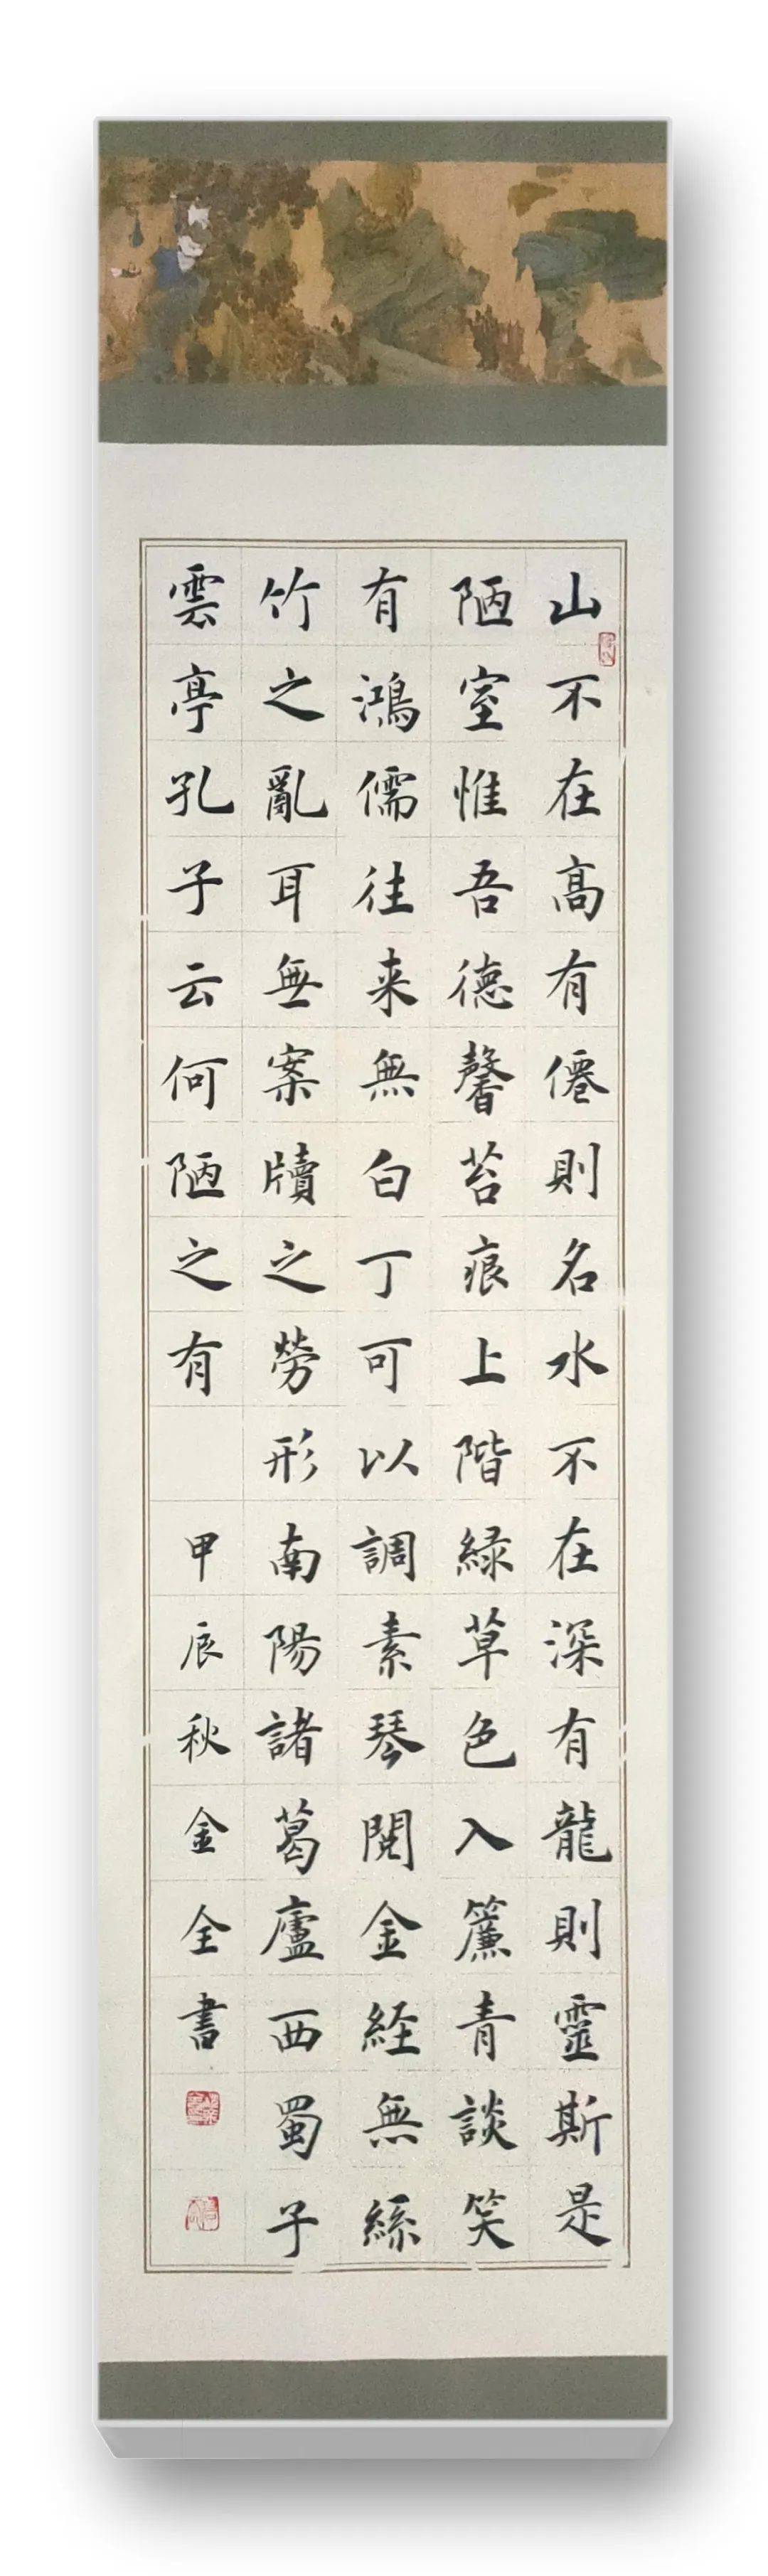 山不在高有僊則名水不在深有龍則靈斯是
陋室惟吾德馨苔痕上階緑草色入簾青談笑
有鴻儒往来無白丁可以調素琴閱金経無絲
竹之亂耳無案牘之勞形南陽諸葛廬西蜀子
雲亭孔子云何陋之有
甲辰秋金全書